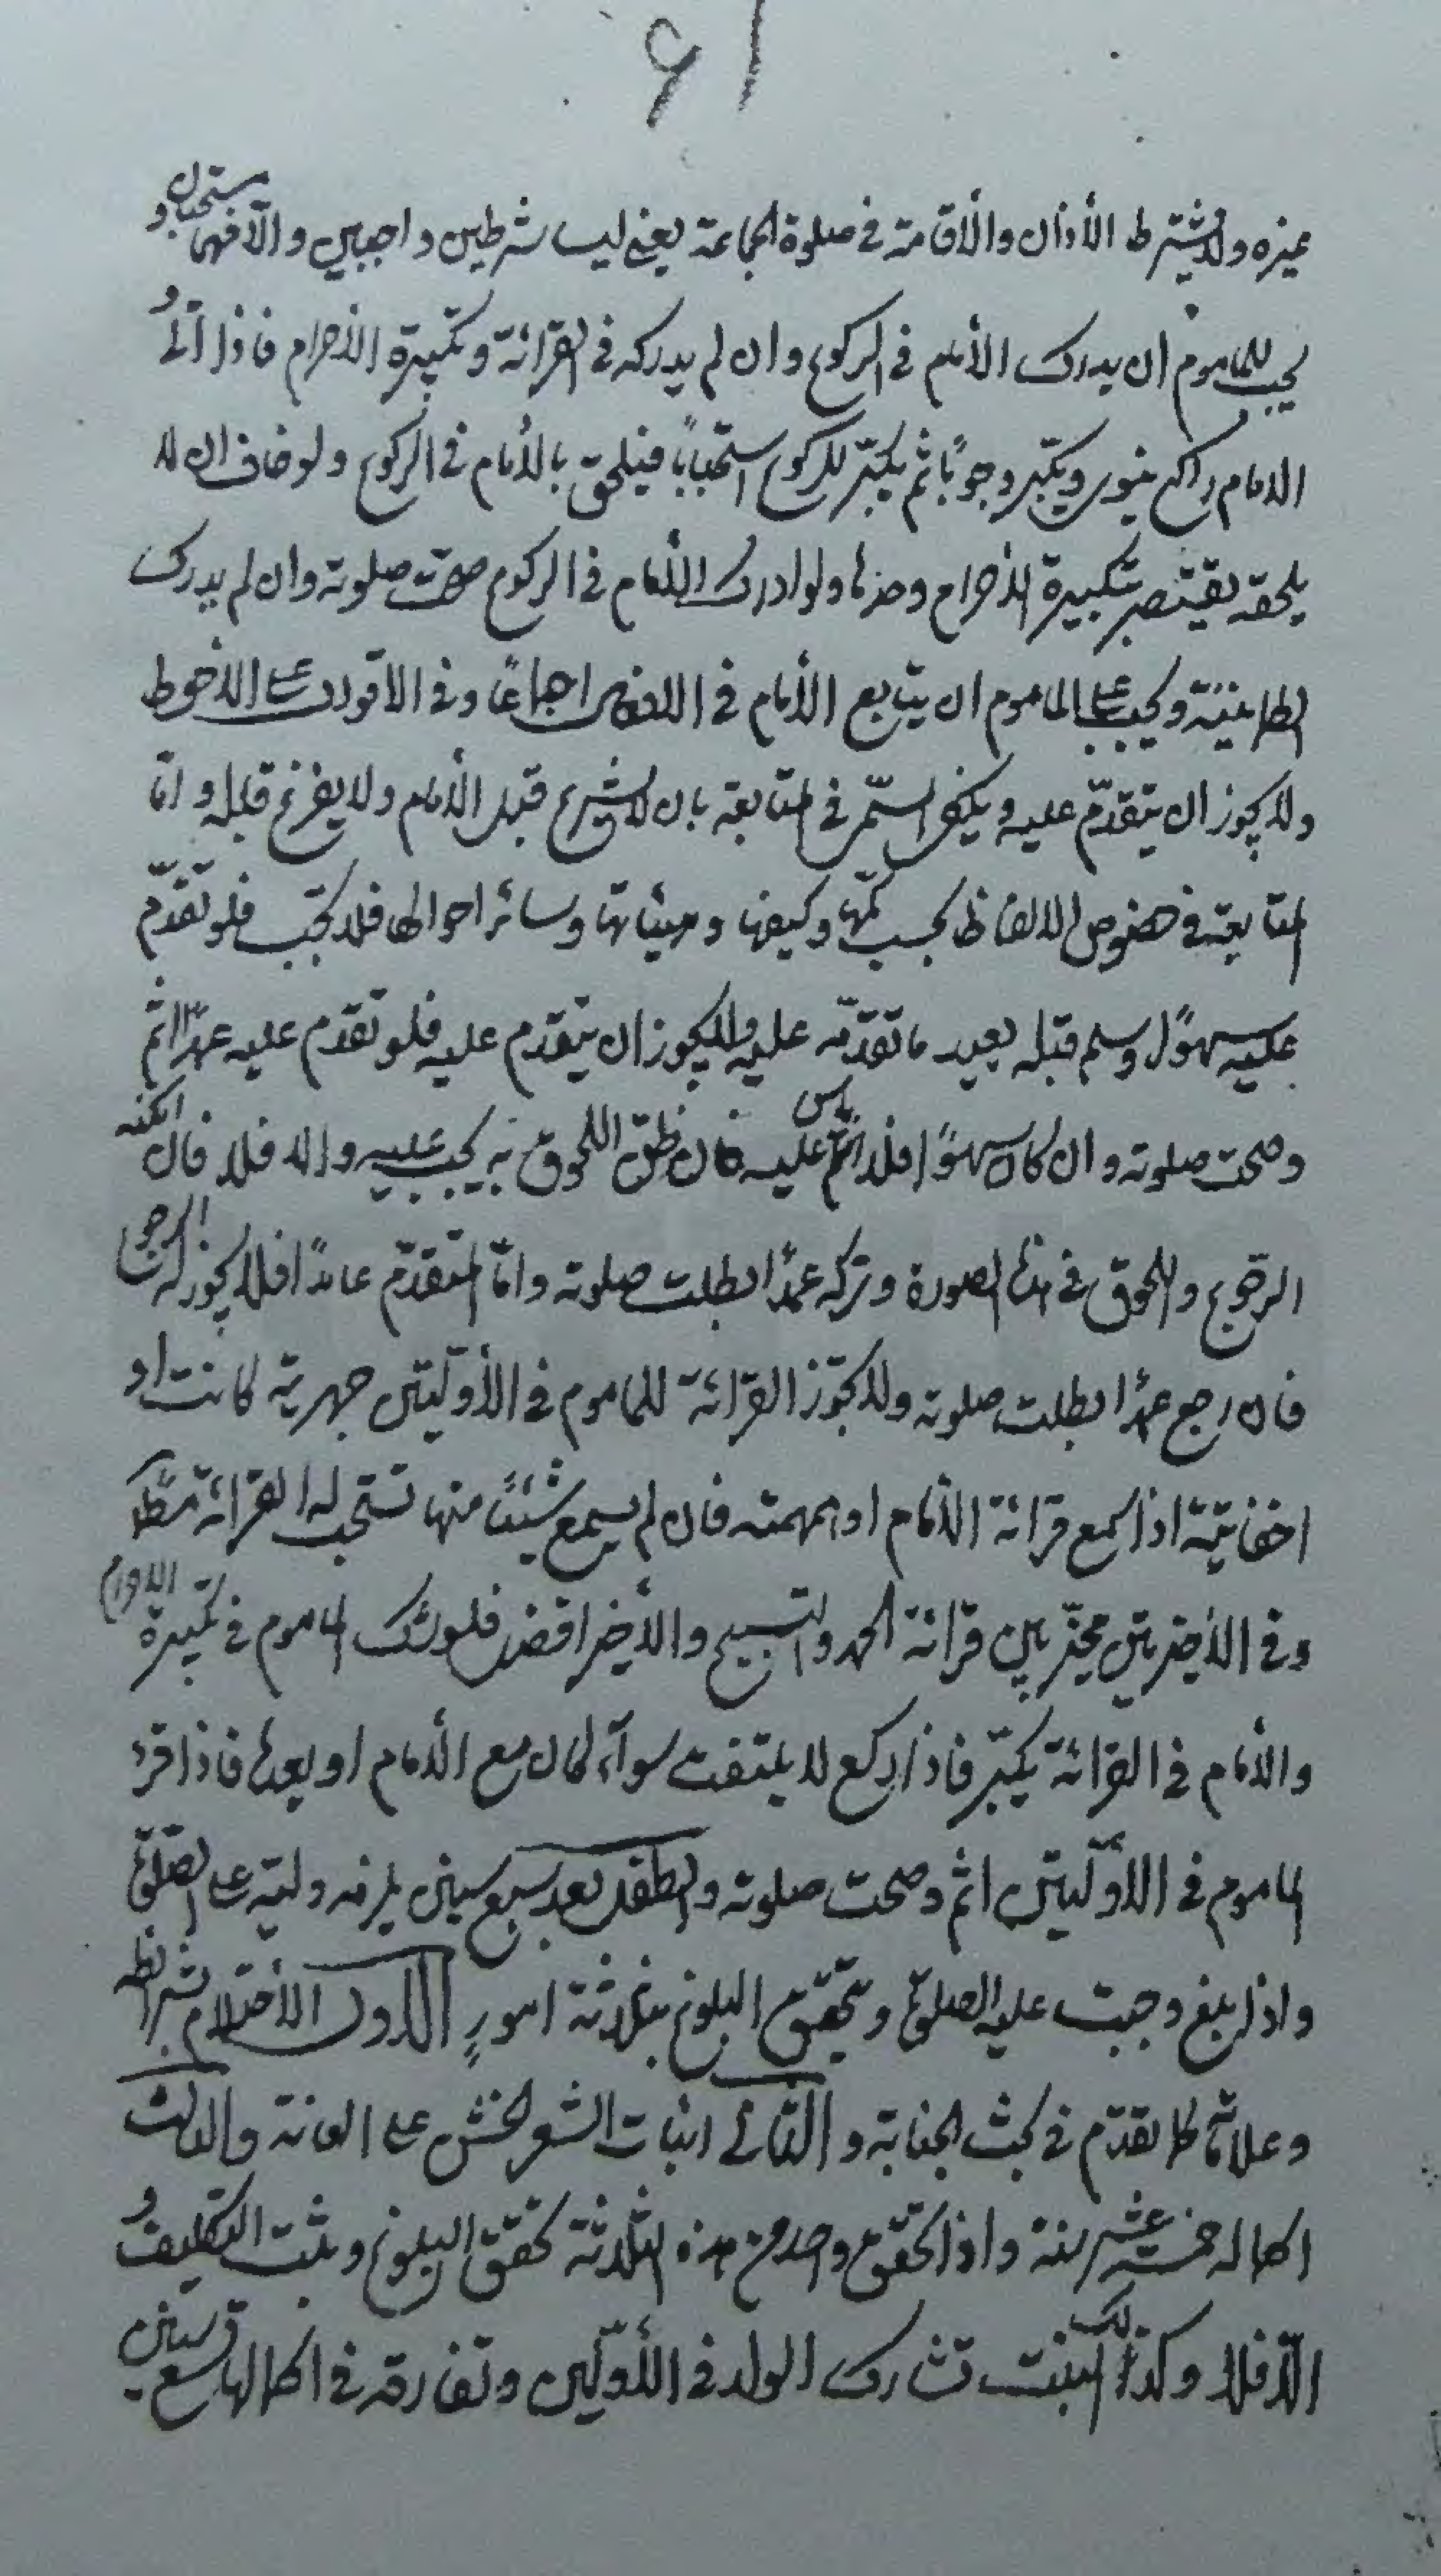 ۶۱
غيره ولا يشترط الأذان والأقامة في صلوة الجماعة يعني ليسا شرطين واجبين والّا فهما مستحبان و
يجب للماموم ان يدرك الأمام في الركوع وان لم يدركه في القرائة وتكبيرة الأحرام فاذا
الامام راكع ينوي ويكبّر وجوبًا ثم يكبّر للركوع استحبابًا فيلحق بالأمام في الركوع ولو خاف ان لا
يلحقه يقتصر بتكبيرة الأحرام وحدها ولو ادرك الأمام في الركوع صحت صلوته وان لم يدرك
الطمانينة ويجب على الماموم ان يتابع الأمام في الافعال اجماعًا وفي الاقوال على الاحوط
ولا يجوز ان يتقدّم عليه ويكفي في المتابعة بان لا يشرع قبل الأمام ولا يفرغ قبله وامّا
المتابعة في خصوص الالفاظ بحسب كمّها وكيفها وهيئاتها وسائر احوالها فلا تجب فلو تقدّم
عليه سهوًا وسلم قبله يعيد ما تقدّمه عليه ولا يجوز ان يتقدم عليه فلو تقدم عليه عمدًا اثم
وصحت صلوته وان كان سهوًا فلا باس عليه فان ظنّ اللحوق به يجب عليه والا فلا فان امكنه
الرجوع واللحوق في هذه الصورة وتركه عمدًا بطلت صلوته وامّا المتقدّم عامدًا فلا يجوز له الرجوع
فان رجع عمدًا بطلت صلوته ولا تجوز القرائة للماموم في الأوّليتين جهرية كانت او
اخفاتيّة اذا سمع قرائة الأمام او همهمته فان لم يسمع شيئًا منها تستحب له القرائة مطلقا
وفي الأخيرتين مخيّر بين قرائة الحمد والتسبيح والأخير افضل فلو شك الماموم في تكبيرة الاحرام
والأمام في القرائة يكبّر فاذا ركع لا يلتفت سوآء كان مع الأمام او بعده فاذا قرء
الماموم في الأوّليتين اثم وصحت صلوته والطفل بعد سبع سنين يلزمه وليّه على الصلوة
واذا بلغ وجبت عليه الصلوة ويتحقق البلوغ بثلاثة امورٍ الاول الأحتلام بشرائطه
وعلائمه كما تقدّم في بحث الجنابة والثاني انبات الشعر الخشن على العانة والثالث
اكماله خمسة عشر سنة واذا تحقق واحد من هذه الثلاثة تحقق البلوغ ويثبت التكليف و
الّا فلا وكذلك البنت تشارك الولد في الأوّلين وتفارقه في اكمالها تسع سنين